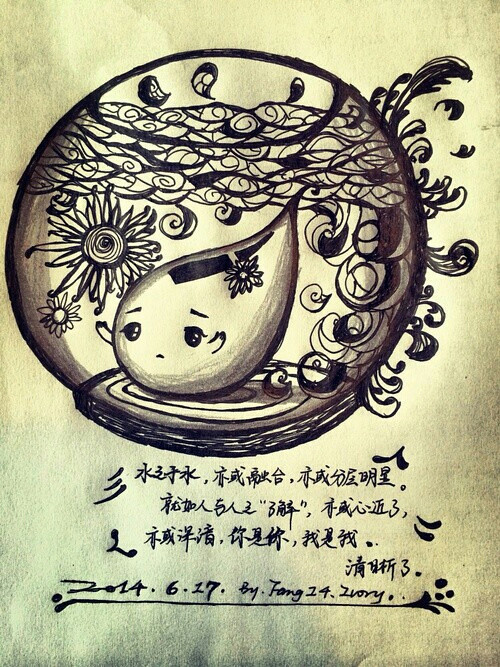 水之于水，亦或融合，亦或分层明星。
就如人与人之“了解”，亦或心近了，
亦或深谙，你是你，我是我..
清晰了。
2014.6.17. By. Fang I4. Ivory..